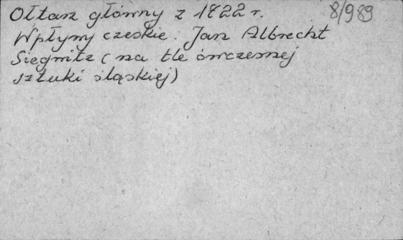 Ołtarz główny z 1722 r. 8/989
Wpływy czeskie. Jan Albrecht
Siegnitz (na tle ówczesnej
sztuki śląskiej)